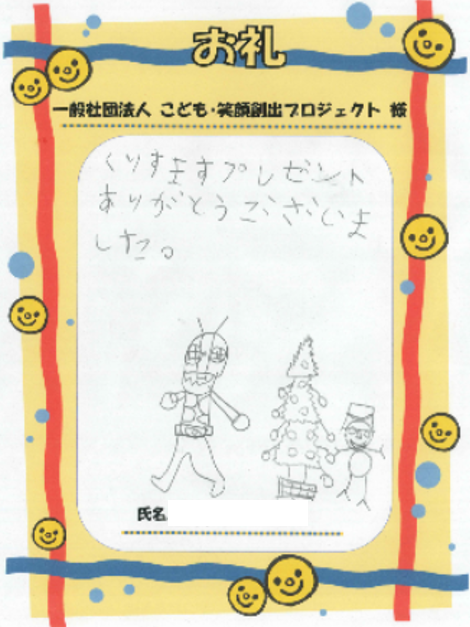 お礼
一般社団法人 こども・笑顔創出プロジェクト 様
くりすますプレゼント
ありがとうございま
した。
氏名